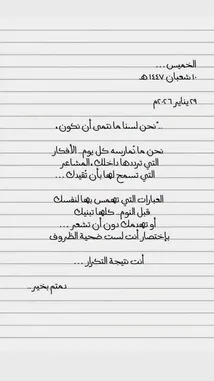 الخميس ...
١٠ شعبان ١٤٤٧ هـ
٢٩ يناير ٢٠٢٦م
.."نحن لسنا ما نتمنى أن نكون ،
نحن ما نُمارسه كل يوم.. الأفكار
التي ترددها داخلك، المشاعر
التي تسمح لها بأن تُقيدك ...
العبارات التي تهمس بها لنفسك
قبل النوم.. كلها تبنيك
أو تهدمك دون أن تشعر ...
بإختصار أنت لست ضحية الظروف
أنت نتيجة التكرار ...
دمتم بخير..